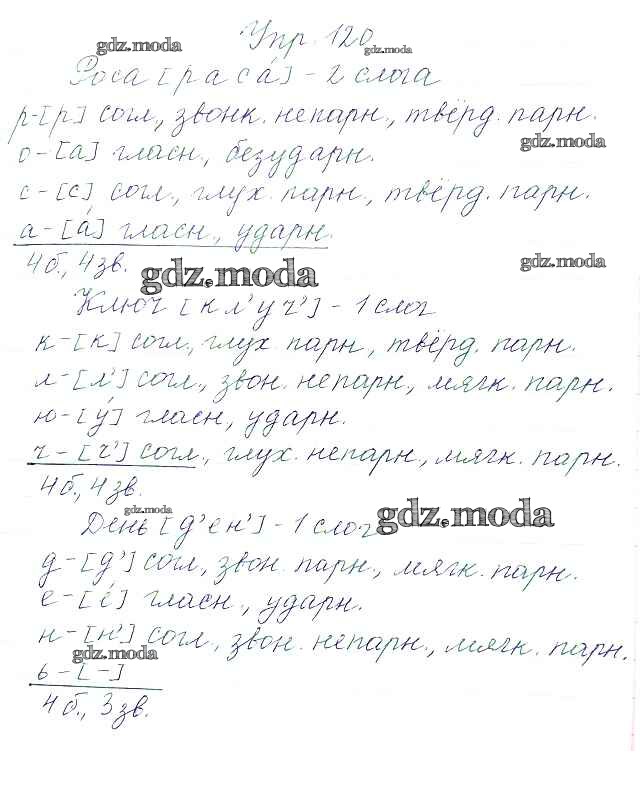 Упр. 120
gdz.moda gdz.moda
Роса [раса́] - 2 слога
р-[р] согл., звонк. непарн., твёрд. парн.
gdz.moda
о-[а] гласн., безударн.
с-[с] согл., глух. парн., твёрд. парн.
а-[а́] гласн., ударн.
4б., 4зв. gdz.moda gdz.moda
Ключ [кл'уч'] - 1 слог
к-[к] согл., глух. парн., твёрд. парн.
л-[л'] согл., звон. непарн., мягк. парн.
ю-[у́] гласн., ударн.
ч-[ч'] согл., глух. непарн., мягк. парн.
4б., 4зв.
gdz.moda
День [д'ен'] - 1 слог gdz.moda
д-[д'] согл., звон. парн., мягк. парн.
е-[е́] гласн., ударн.
н-[н'] согл., звон. непарн., мягк. парн.
gdz.moda
ь-[-]
4б., 3зв.